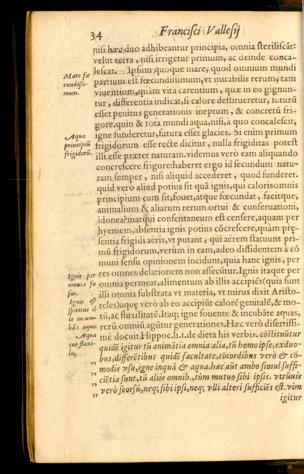 34 Francisci Vallesij
nisi hæc duo adhibeantur principia, omnia sterilescãt:
velut terra, nisi irrigetur primum, ac deinde conca-
lescat. Ipsum quoque mare, quod omnium mundi
Mare fœ
cundissi-
mum.
partium est fœcundissimum, vt mirabilis rerum, tam
viuentium, quàm vita carentium, quæ in eo gignun-
tur, differentia indicat, si calore destitueretur, futurũ
esset penitus generationis ineptum, & concretũ fri-
gore, quin & tota mundi aqua, nisi a quo concalescit,
igne funderetur, futura esset glacies. Si enim primum
Aqua
principiũ
frigidorũ.
frigidorum esse recte dicitur, nulla frigiditas potest
illi esse præter naturam. videmus verò eam aliquando
concrescere frigore: habere ergo id secundum natu-
ram semper, nisi aliquid accederet, quod funderet.
quid verò aliud potius sit quã ignis, qui caloris omnis
principium cum sit, fouet, atque fœcundat, facitque,
animalium & aliarum rerum ortui & conseruationi,
idoneã: mat qui consentaneum est censere, aquam per
hyemem, absentia ignis potius cõcrescere, quàm præ-
sentia frigidi aëris, vt putant, qui aërem statuunt pri-
mũ frigidorum, verùm in eam, adeo dissidentem à cõ
muni sensu opinionem incidunt, quia hanc ignis, per
res omnes delationem non assecuti. Ignis itaque per
Ignis per
omnia fu
sus.
omnia permeat, alimentum ab illis accipẽs (quia sunt
illi omnia substrata vt materia, vt mirus dixit Aristo-
Ignis est
spiritus
aqua
teles) aque verò ab eo accipiũt calorẽ genitalẽ, & mo-
tũ, ac fluxilitatẽ. Itaq; igne fouente & incubãte aquæ,
rerũ omniũ agũtur generationes. Hæc verò disertissi-
mè docuit Hippoc. li. 1. de dieta his verbis. cõstituũtur
quidẽ igitur tũ animãtia omnia alia, tũ homo ipse, ex duo-
bus, differẽtibus quidẽ facultate, cõcordibus verò & cõ-
modis vsu, igne inquã & aqua. hæc aũt ambo simul suffi-
ciẽtia sunt, tũ alijs omnib., tũm mutuo sibi ipsis. vtrũuis
verò seorsũ, neq; sibi ipsi, neq; vlli alteri sufficiẽs est. vim
igitur